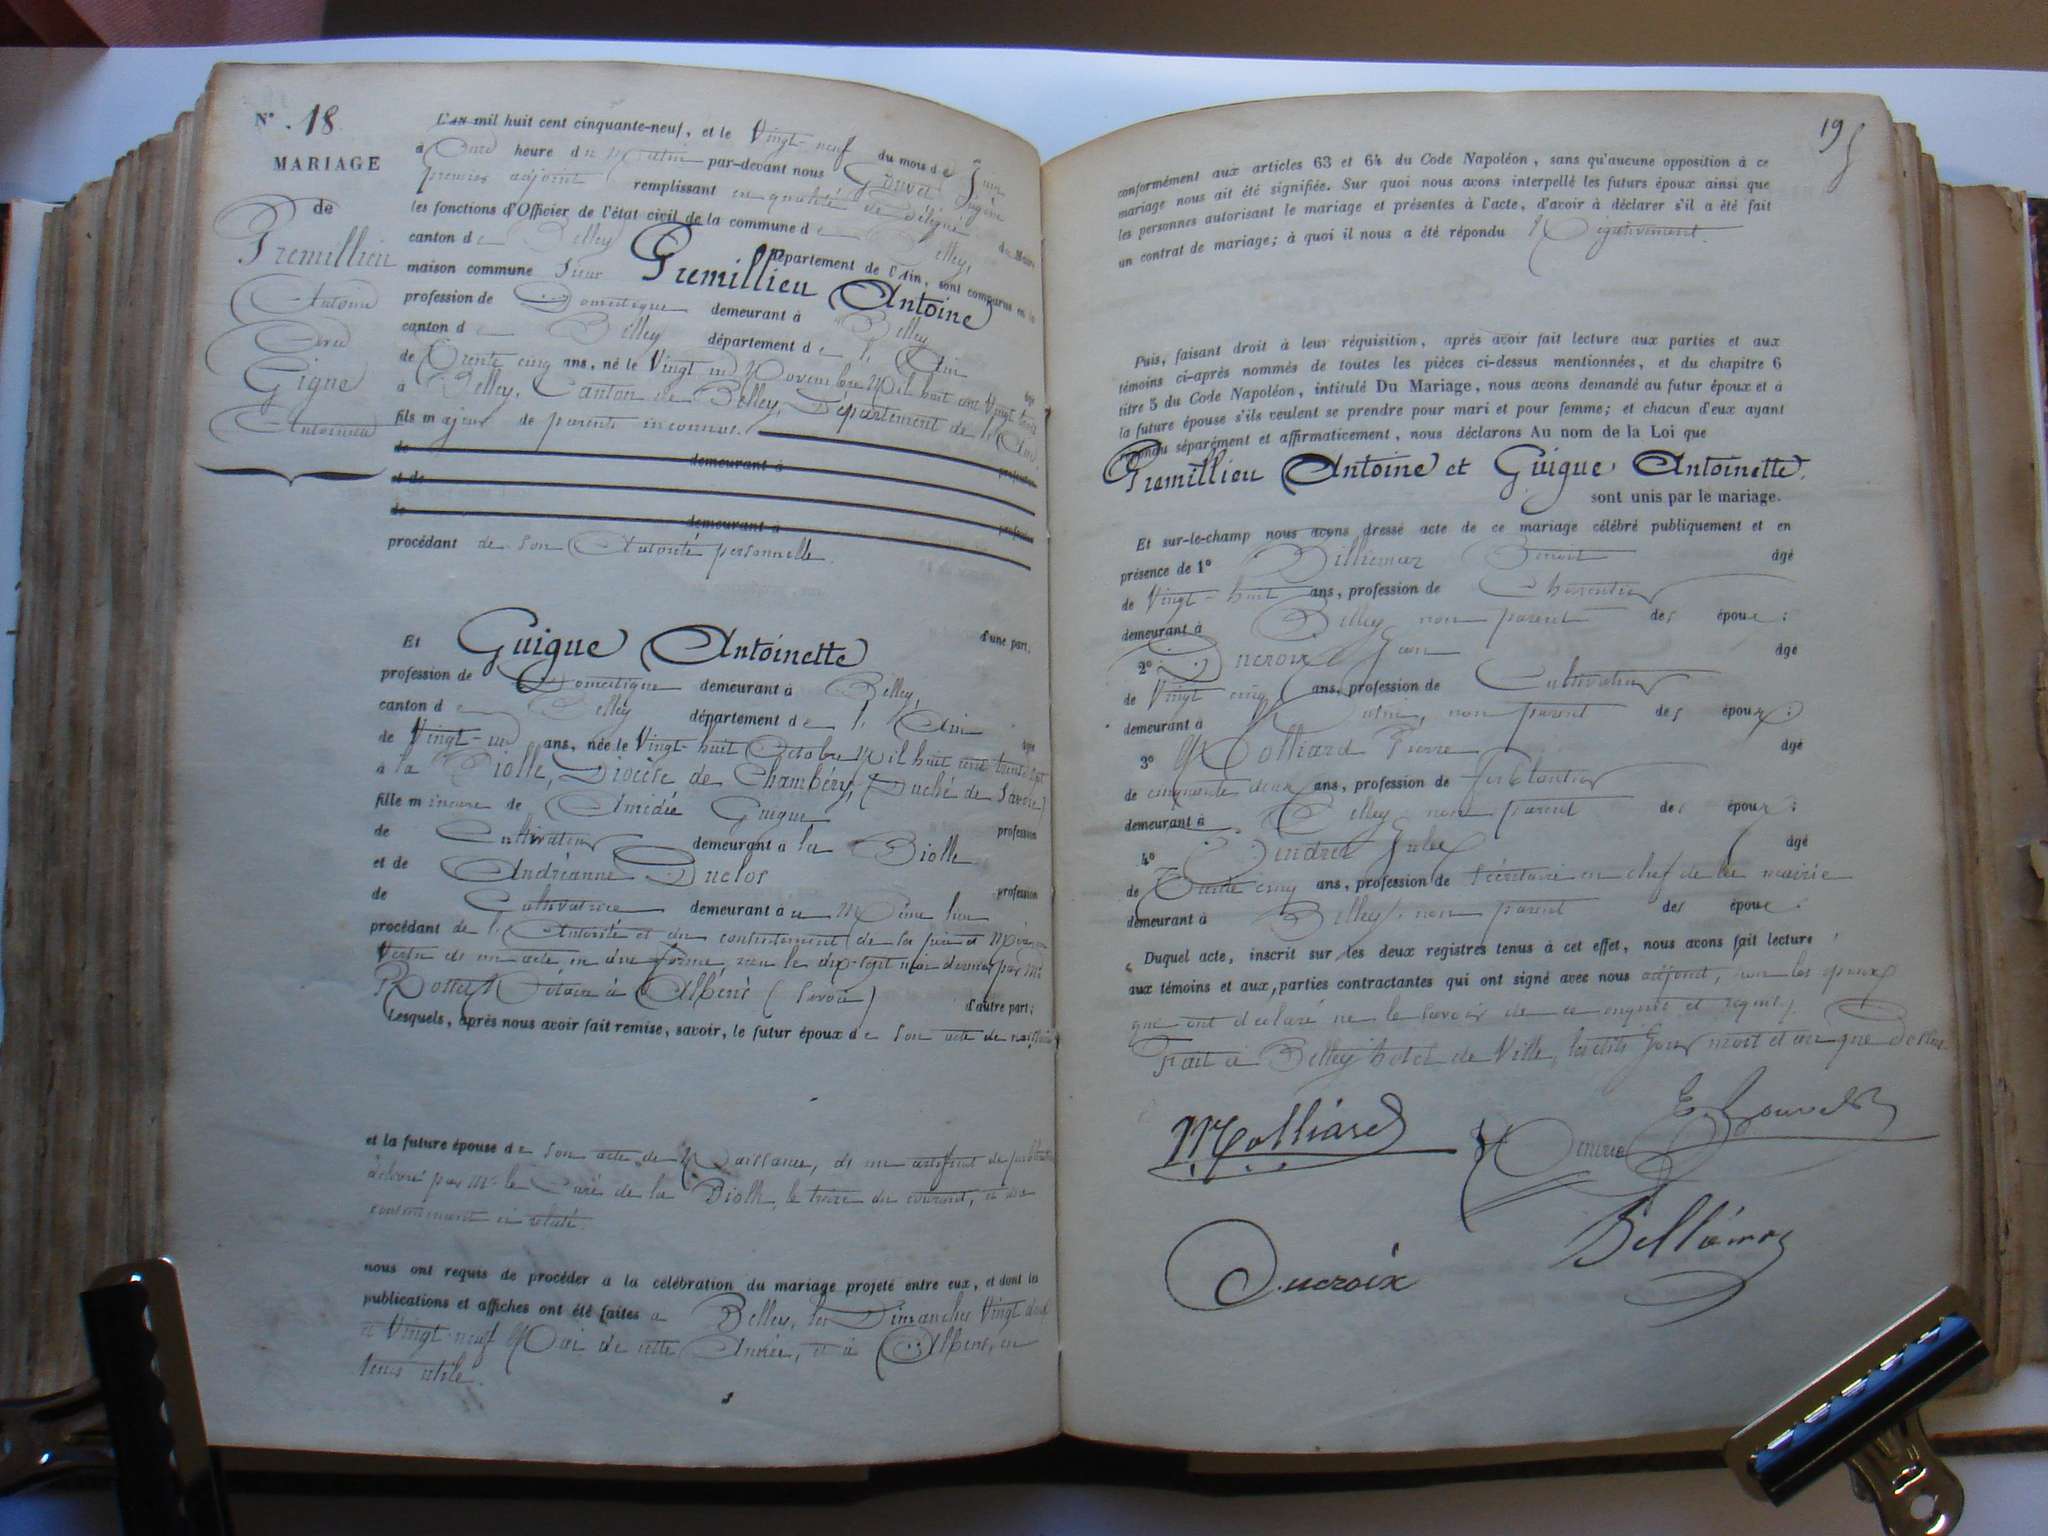 N° 18
MARIAGE
de
Premillieu
Antoine
Avec
Gigue
Antoinette
L'an mil huit cent cinquante-neuf, et le Vingt-neuf du mois de Juin
à onze heure du Matin par-devant nous
premier adjoint remplissant en qualité de délégué du Maire
les fonctions d'Officier de l'état civil de la commune de Belley,
canton de Belley département de l'Ain, sont comparus en la
maison commune Sieur Premillieu Antoine
profession de Domestique demeurant à Belley
canton de Belley département de l'Ain âgé
de Trente cinq ans, né le Vingt un Novembre Mil huit cent Vingt trois
à Belley, Canton de Belley, Département de l'Ain
fils majeur de parents inconnus.
de demeurant à profession
et de
de demeurant à profession
procédant de son Autorité personnelle.
d'une part.
Et Guigue Antoinette
profession de Domestique demeurant à Belley,
canton de Belley département de l'Ain âgée
de Vingt-un ans, née le Vingt-huit Octobre Mil huit cent trente sept
à la Biolle, Diocèse de Chambéry, (Duché de Savoie)
fille mineure de Amédée Guigue profession
de Cultivateur demeurant à la Biolle
et de Andréanne Duclos profession
de Cultivatrice demeurant au Même lieu
procédant de l'Autorité et du consentement de ses père et Mère en
Vertu d'un acte en due forme, reçu le dix-sept mai dernier par Me
Notaire à Albens (Savoie) d'autre part;
Lesquels, après nous avoir fait remise, savoir, le futur époux de son acte de naissance
et la future épouse de son acte de Naissance, d'un certificat de publication
délivré par Mr le Curé de la Biolle, le treize du courant, et du
consentement ci relaté.
nous ont requis de procéder à la célébration du mariage projeté entre eux, et dont les
publications et affiches ont été faites à Belley, les Dimanches Vingt deux
et Vingt neuf Mai de cette Année, et à Albens, en
tems utile.
19
conformément aux articles 63 et 64 du Code Napoléon, sans qu'aucune opposition à ce
mariage nous ait été signifiée. Sur quoi nous avons interpellé les futurs époux ainsi que
les personnes autorisant le mariage et présentes à l'acte, d'avoir à déclarer s'il a été fait
un contrat de mariage; à quoi il nous a été répondu Négativement.
Puis, faisant droit à leur réquisition, après avoir fait lecture aux parties et aux
témoins ci-après nommés de toutes les pièces ci-dessus mentionnées, et du chapitre 6
titre 5 du Code Napoléon, intitulé Du Mariage, nous avons demandé au futur époux et à
la future épouse s'ils veulent se prendre pour mari et pour femme; et chacun d'eux ayant
répondu séparément et affirmativement, nous déclarons Au nom de la Loi que
Premillieu Antoine et Guigue Antoinette.
sont unis par le mariage.
Et sur-le-champ nous avons dressé acte de ce mariage célébré publiquement et en
présence de 1° Billiemaz Benoit âgé
de Vingt-huit ans, profession de Charcutier
demeurant à Belley non parent des époux;
2° Ducroix Jean âgé
de Vingt cinq ans, profession de Cultivateur
demeurant à non parent des époux;
3° Molliard Pierre âgé
de cinquante deux ans, profession de ferblantier
demeurant à Belley non parent des époux;
4° Jules âgé
de Trente cinq ans, profession de Sécrétaire en chef de la mairie
demeurant à Belley, non parent des époux.
Duquel acte, inscrit sur les deux registres tenus à cet effet, nous avons fait lecture
aux témoins et aux parties contractantes qui ont signé avec nous adjoint, non les époux
qui ont déclaré ne le savoir de ce enquis et requis,
Fait à Belley hotel de Ville, lesdits jour mois et an que dessus
Molliard
Ducroix